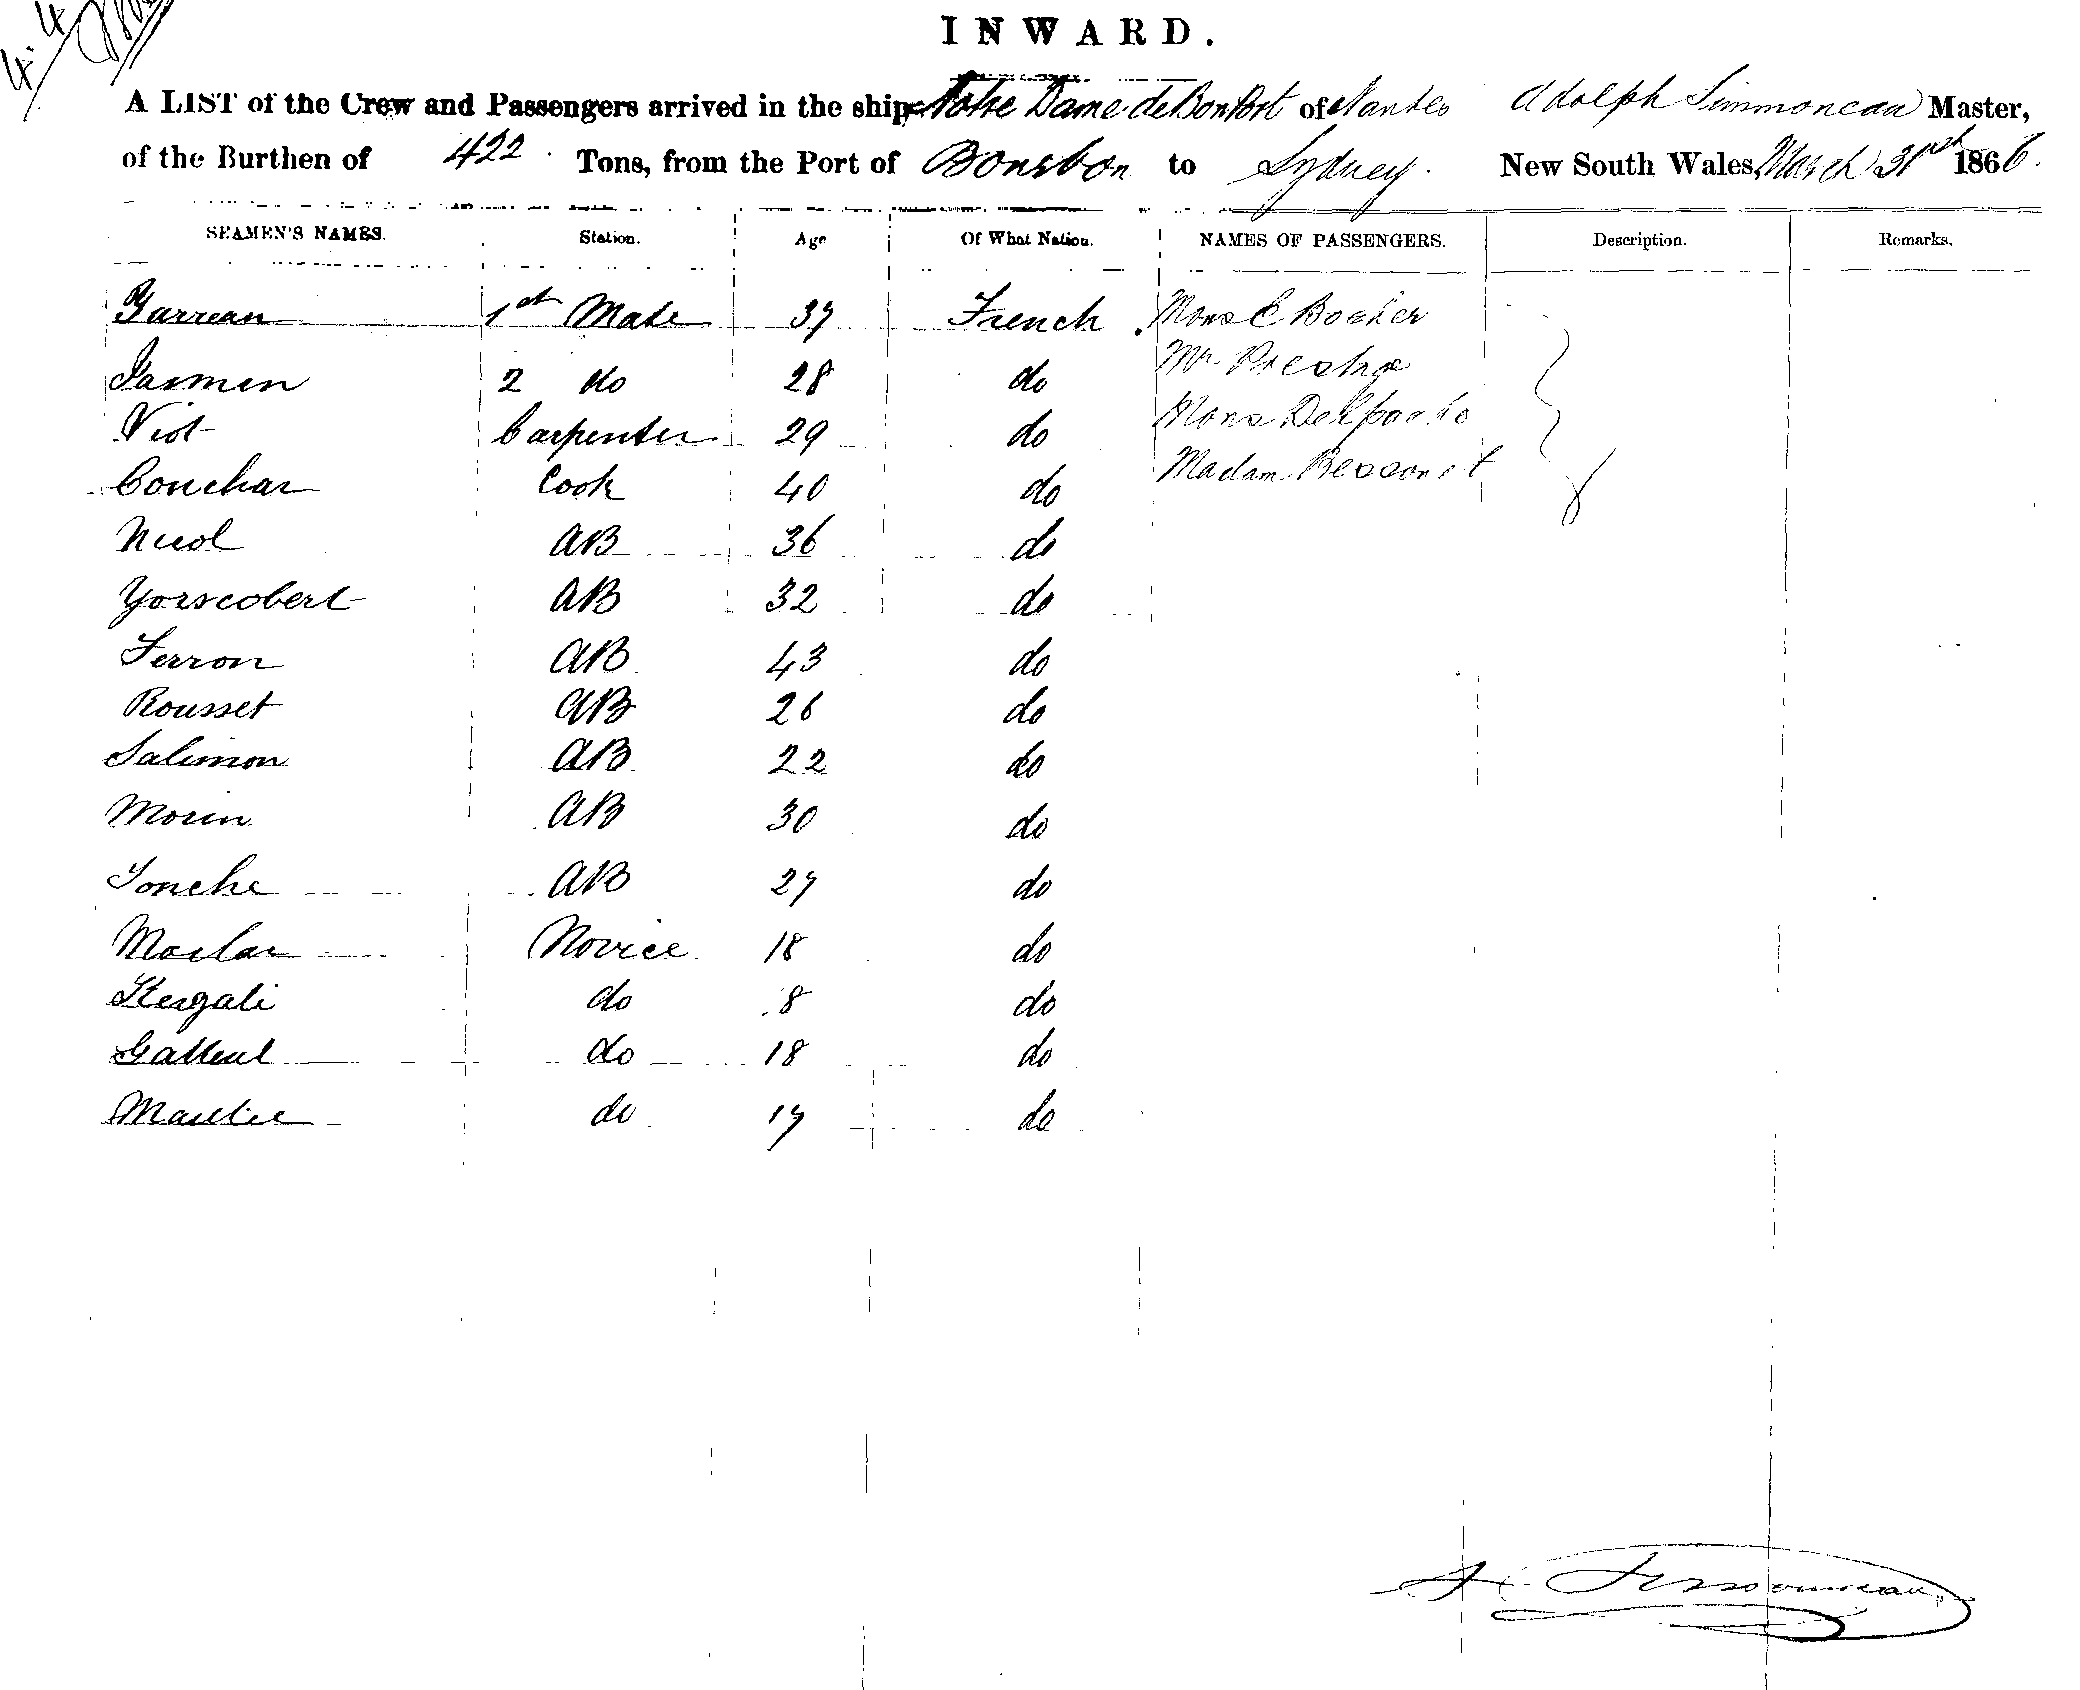 INWARD.
A LIST of the Crew and Passengers arrived in the ship Notre Dame de Bon Port of Nantes Adolph Simmoneau Master,
of the Burthen of 422 Tons, from the Port of Bourbon to Sydney. New South Wales, March 31st 1866.
SEAMEN'S NAMES. Station. Age Of What Nation. NAMES OF PASSENGERS. Description. Remarks.
Garreau 1st Mate 37 French Mons E Boeher
Jasmen 2 do 28 do Mr. Prestige
Viot Carpenter 29 do Mons
Couchar Cook 40 do Madam Bessonet
Nicol AB 36 do
Yorscobert AB 32 do
Ferron AB 43 do
Rousset AB 26 do
Salimon AB 22 do
Morin AB 30 do
Touche AB 27 do
Moslar Novice 18 do
Kergali do 8 do
Galleul do 18 do
do 17 do